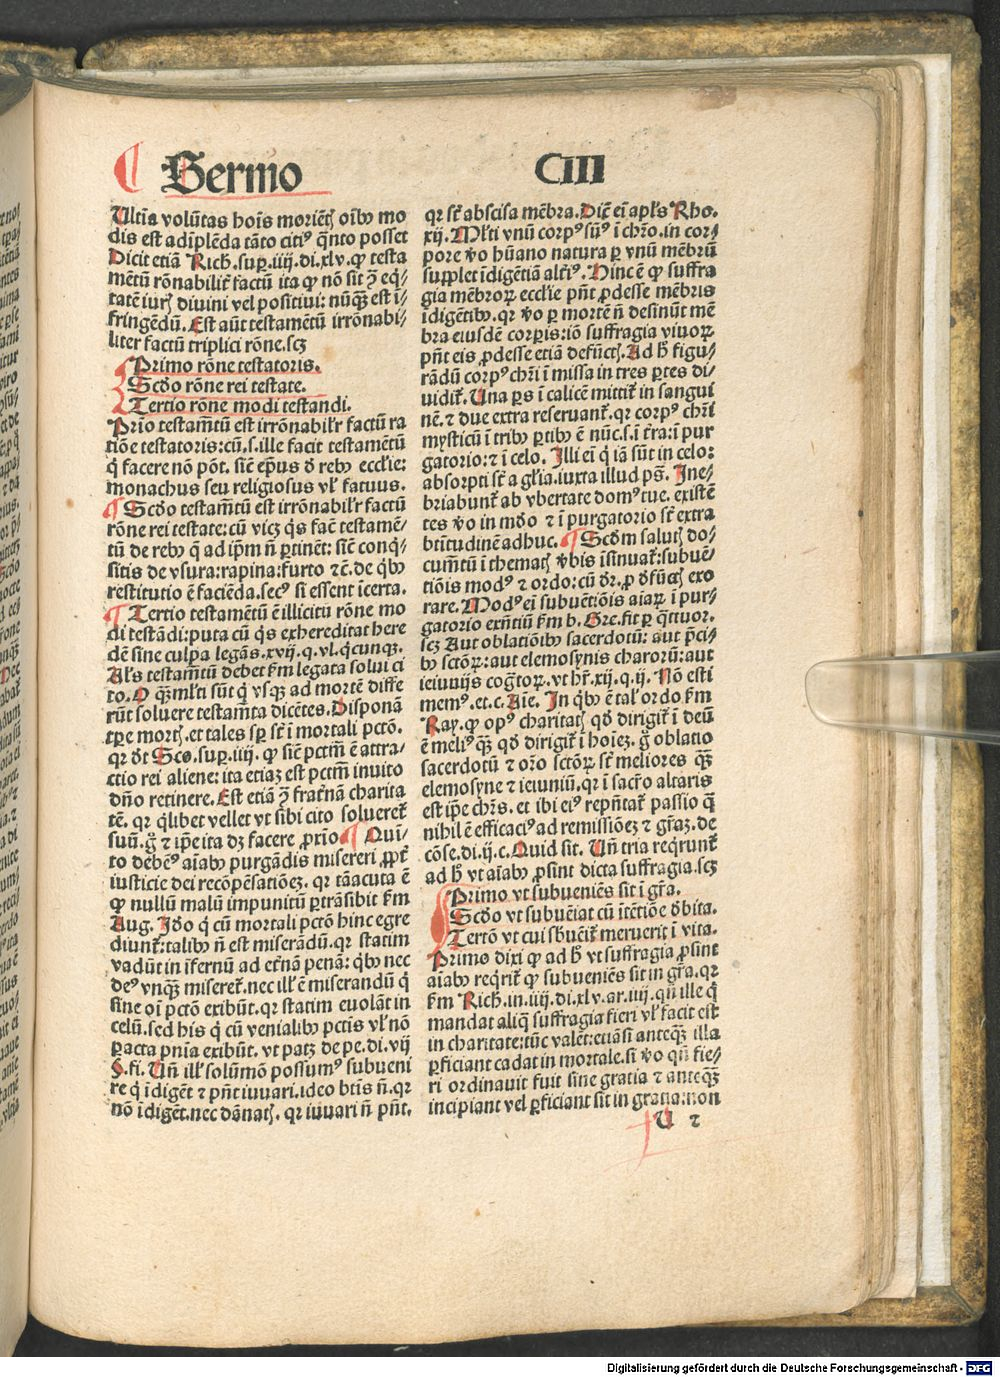 ¶ Sermo CIII
Ultīa volūtas hoīs moriēt͛ oībꝰ mo
dis est adīplēda tāto citiꝰ q̄nto posset
Dicit etiā Rich. suꝑ. iiij. di. xlv. ꝙ testa
mētū rōnabilit᷑ factū ita ꝙ nō sit ꝯ̄ eq̄/
tatē iur͛ divini vel positivi: nūq̄ꝫ est ī/
fringēdū. Est aūt testamētū irrōnabi/
liter factū triplici rōne. scꝫ
Primo rōne testatoris.
Scd̄o rōne rei testate.
Tertio rōne modi testandi.
Prīo testam̄tū est irrōnabil'r factū ra
tiōe testatoris: cū. s. ille facit testamētū
q̄ facere nō pōt. sic̄ ep̄us d̄ rebꝰ eccl'ie:
monachus seu religiosus vl' fatuus.
¶ Scd̄o testam̄tū est irrōnabil'r factū
rōne rei testate: cū vicꝫ q̄s fac̄ testamē/
tū de rebꝰ q̄ ad ip̄m n̄ ꝑtinēt: sic̄ conq̄/
sitis de vsura: rapina: furto ⁊c̄. de q̄bꝰ
restitutio ē faciēda. secꝰ si essent īcerta.
¶ Tertio testamētū ē illicitū rōne mo
di testādi: puta cū q̄s exhereditat here
dē sine culpa legās. xvij. q. vl. q̄cunqꝫ.
Al's testam̄tū debet ẜm legata solui ci
to. O q̄ꝫ ml'ti sūt q̄ vsqꝫ ad mortē diffe
rūt soluere testam̄ta dicētes. Disponā
tꝑe mort͛. et tales sꝑ st̄ ī mortali pctō.
qr d̄t Sco. suꝑ. iiij. ꝙ sic̄ pctm̄ ē attra/
ctio rei aliene: ita etiaꝫ est pctm̄ inuito
dn̄o retinere. Est etiā ꝯ̄ frat̄nā charita
tē. qr q̄libet vellet vt sibi cito soluereт᷑
suū. g̊ ⁊ ip̄e ita dꝫ facere ꝓxīo ¶ Quī/
to debēꝰ aīabꝰ purgādis misereri ꝓpt᷑
iusticie dei recōpēsatiōeꝫ. qr tā acuta ē
ꝙ nullū malū impunitū ꝑtrāsibit ẜm
Aug. Iō̄o q̄ cū mortali pctō hinc egre
diunt᷑: talibꝰ n̄ est miserādū. qr statim
vadūt in īfernū ad et̄nā penā: q̄bꝰ nec
deꝰ vnq̄ꝫ miseret᷑. nec ill' ē miserandū q̄
sine oī pctō exibūt. qr statim euolāt in
celū. sed his q̄ cū venialibꝰ pctīs vl' nō
ꝑacta pnīa exibūt. vt patꝫ de pe. di. vij
§. fi. Vn̄ ill' solūmō possumꝰ subueni
re q̄ īdigēt ⁊ pn̄t iuuari. ideo btīs n̄. qr
nō īdigēt. nec dānat͛. qr iuuari n̄ pn̄t.
qr st̄ abscisa mēbra. Dic̄ eī apl's Rho.
xij. Ml'ti vnū corpꝰ sūꝰ ī ch̄ro. in cor/
pore v̊o hūano natura ꝑ vnū mēbrū
supplet īdigētiā alt̄iꝰ. Hinc ē ꝙ suffra
gia mēbroꝝ eccl'ie pn̄t ꝓdesse mēbris
īdigētibꝰ. qr v̊o ꝑ mortē n̄ desinūt mē
bra eiusdē corꝑis: iō suffragia viuoꝝ
pn̄t eis ꝓdesse etiā defūct͛. Ad h̄ figu/
rādū corpꝰ ch̄ri ī missa in tres ꝑtes di/
uidit᷑. Una ꝑs ī calicē mittit᷑ in sangui
nē. ⁊ due extra reseruant᷑. qr corpꝰ ch̄ri
mysticū ī tribꝰ ꝑtibꝰ ē nūc. s. ī t̄ra: ī pur
gatorio: ⁊ ī celo. Illi eī q̄ iā sūt in celo:
absorpti st̄ a gl'ia. iuxta illud ps̄. Ine/
briabunt᷑ ab vbertate domꝰ tue. existē
tes v̊o in mūdo ⁊ ī purgatorio st̄ extra
btītudinē adhuc. ¶ Scd̄m salut͛ do/
cum̄tū ī themat͛ v̄bis īsinuat᷑: subuē/
tiōis modꝰ ⁊ ordo: cū d̄r. ꝓ d̄fūct͛ exo
rare. Modꝰ eī subuētiōis aīaꝝ ī pur/
gatorio exn̄tiū ẜm b. Gre. fit ꝑ q̄ttuor.
seꝫ Aut oblatiōibꝰ sacerdotū: aut p̄ci/
bꝰ sctōꝝ: aut elemosynis charorū: aut
ieiunijs cog̅toꝝ. vt hr̄. xij. q. ij. Nō esti
memꝰ. et. c. Aīe. In q̄bꝰ ē tal' ordo ẜm
Ray. ꝙ opꝰ charitat͛ qd̄ dirigit᷑ ī deū
ē meliꝰ q̄ꝫ qd̄ dirigit᷑ ī hoīeꝫ. g̊ oblatio
sacerdotū ⁊ or̄o sctōꝝ st̄ meliores q̄ꝫ
elemosyne ⁊ ieiuniū. qr ī sacr̄o altaris
est ip̄e ch̄rs. et ibi eiꝰ repn̄tat᷑ passio q̄
nihil ē efficaciꝰ ad remissiōeꝫ ⁊ gr̄aꝫ. de
cōse. di. ij. c. Quid sit. Vn̄ tria reqrunt᷑
ad h̄ vt aīabꝰ ꝓsint dicta suffragia. scꝫ
Primo vt subueniēs sit ī gr̄a.
Scd̄o vt subueiat cū ītētiōe d̄bita.
Tertō vt cui sbuēit᷑ meruerit ī vita.
Primo dixi ꝙ ad h̄ vt suffragia ꝓsint
aīabꝰ reqrit᷑ ꝙ subueniēs sit in gr̄a. qr
ẜm Rich. in. iiij. di. xlv. ar. iiij. qn̄ ille q̄
mandat aliq̄ suffragia fieri vl' facit est
in charitate: tūc valēt: etiā si anteq̄ꝫ illa
ꝑficiant cadat in mortale. si v̊o qn̄ fie/
ri ordinauit fuit sine gratia ⁊ anteq̄ꝫ
incipiant vel ꝑficiant sit in gratia: non
U ⁊
Digitalisierung gefördert durch die Deutsche Forschungsgemeinschaft - DFG